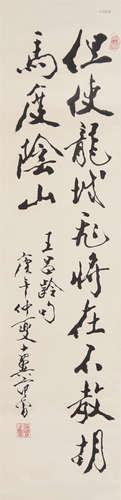 但使龍城飛將在不教胡
馬度陰山
王昌齡句
庚午仲夏